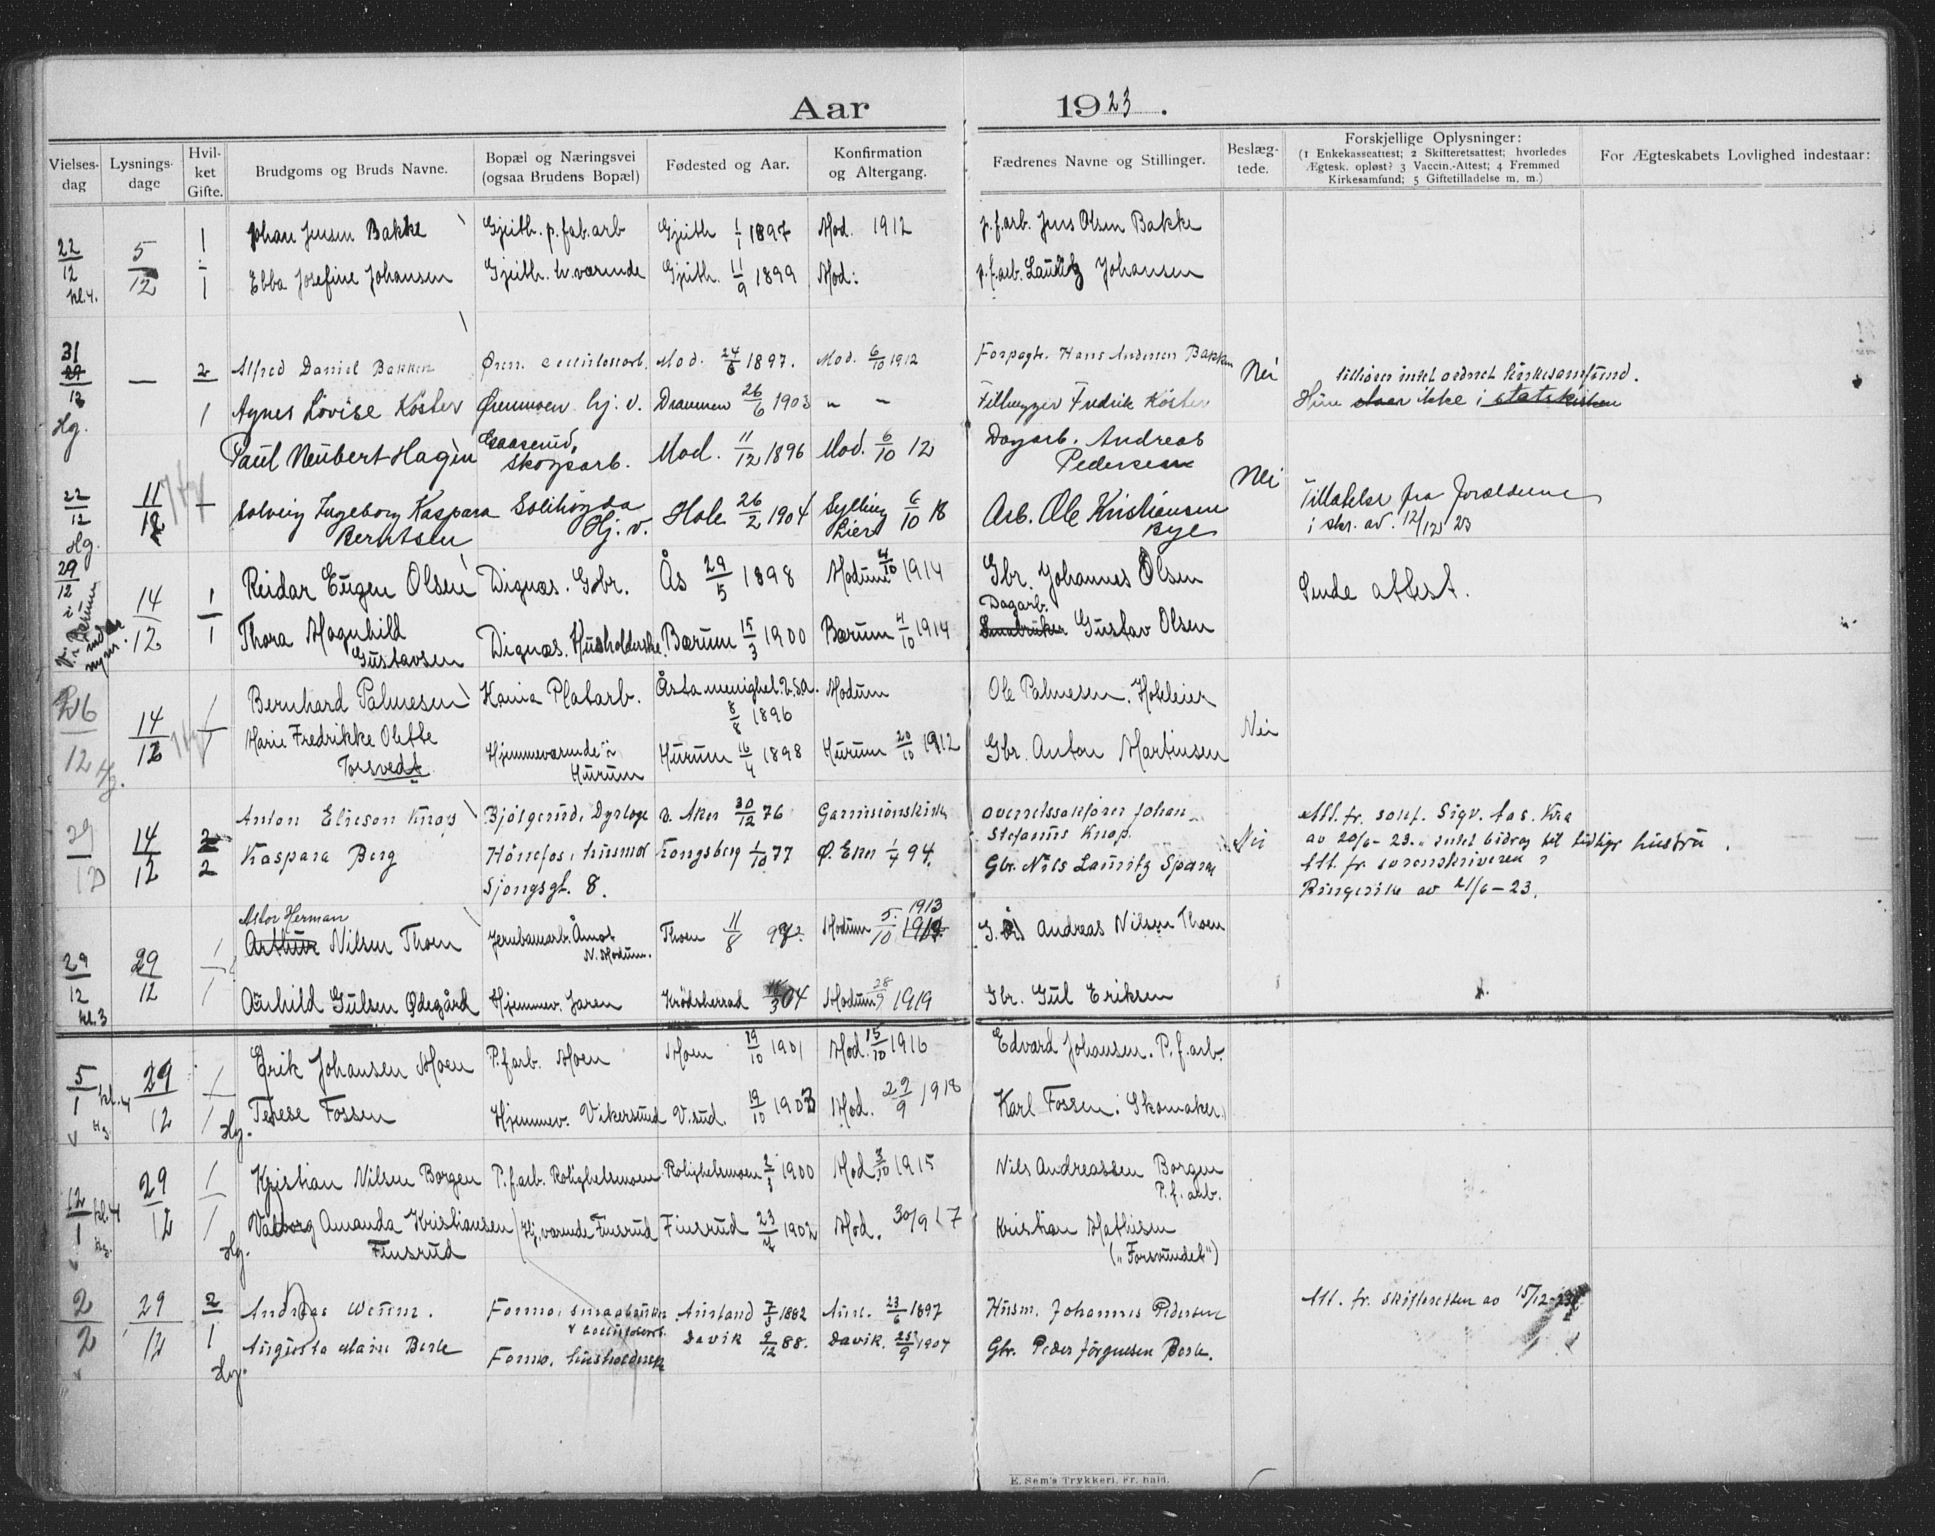 Aar 1923.
Vielses-dag
Lysnings-dage
Hvil-ket Gifte.
Brudgoms og Bruds Navne.
Bopæl og Næringsvei (ogsaa Brudens Bopæl)
Fødested og Aar.
Konfirmation og Altergang.
Fædrenes Navne og Stillinger.
Beslæg-tede.
Forskjellige Oplysninger:
(1 Enkekasseattest; 2 Skifteretsattest; hvorledes
Ægtesk. opløst? 3 Vaccin.-Attest; 4 Fremmed
Kirkesamfund; 5 Giftetilladelse m. m.)
For Ægteskabets Lovlighed indestaar:
22/12 kl. 4. 5/12 1 Johan Jensen Bakke Gjeith. p. fab. arb Gjeith 1/1 1897 Mod. 1912 p.f.arb. Jens Olsen Bakke
1 Ebba Josefine Johansen Gjeith. hv. værende Gjeith. 11/9 1899 Mod: p.f.arb. Lauritz Johansen
31/12 Hg. — 2 Alfred Daniel Bakken Øren. Mod. 24/6 1897. Mod. 6/10 1912 Forpagt. Hans Andersen Bakken Nei tilhører intet ordnet kirkesamfund.
1 Agnes Lovise Köster Ørenmoen hj. v. Drammen 26/6 1903 " — Fredrik Köster Hun staar ikke i statskirken
Paul Neubert Hagen Skogsarb. Mod. 11/12 1896 Mod. 6/10 12 Dagarb. Andreas
Pedersen
22/12 Hg. 11/12 Solveig Ingeborg Kaspara Berntsen Solihøgda Hj. v. Hole 26/2 1904 Sylling Lier 6/10 18 Arb. Ole Kristiansen Bye Nei Tillatelse fra foreldrene
i skr. av. 12/12 23
29/12 i Bærum 14/12 1 Reidar Eugen Olsen Dignæs. Gbr. Ås 29/5 1898 Modum 4/10 1914 Gbr. Johannes Olsen Sende attest.
1 Thora Magnhild Gustavsen Dignæs. Husholderske. Bærum 15/3 1900 Bærum 4/10 1914 Dagarb. Smabruker Gustav Olsen
26/12 Hg. 14/12 Bernhard Palmesen Kania Platarb. Åsta menighet. U.S.A. 8/8 1896 Modum Ole Palmesen. Hoteleier Nei
Marie Fredrikke Olette Torsvedt Hjemmeværende i Hurum Hurum 16/4 1898 Hurum 20/10 1912 Gbr. Anton Martinsen
29/12 14/12 2 Anton Elieson Knap Bjølgerud, Dyrlæge v. Aker 30/12 76 Garnisonskirke overretssakfører Johan
Stefanus Knap. Nei Att. fr. sokf. Sigv. Aas. Kra
av 20/6 - 23. intet bidrag til tidligr hustru.
2 Kaspara Berg Hønefos, husmor Kongsberg 1/10 77 Ø. Eker 1/7 94. Gbr. Nils Lauritz Att. fr. sorenskriveren i
Ringerike av 21/6 - 23.
29/12 kl. 3 29/12 1 Astor Herman Arthur Nilsen Thoen Jernbanearb. Åmot N. Modum. Thoen 11/8 Modum 5/10 1913 Andreas Nilsen Thoen
1 Aashild Gulsen Ødegård Hjemmev. Jaren Krødsherrad 04 Modum 28/9 1919 Gbr. Gul Eriksen
5/1 kl. 4 Hg. 29/12 1 Erik Johansen Moen P.f.arb. Moen Moen 19/10 1901 Mod. 15/10 1916 Edvard Johansen. P.f.arb.
1 Hg. Terese Fossen Hjemmev. Vikersund V.sud. 19/10 1903 Mod. 29/9 1918 Karl Fossen. Skomaker.
12/1 kl. 4 Hg. 29/12 1 Kristian Nilsen Borgen P.f.arb. Rolighetsmoen Rolighetsmoen 1900 Mod. 3/10 1915 Nils Andreassen Borgen
P.f.arb.
1 Hg. Valborg Amanda Kristiansen Finsrud Hj. værende Finsrud Finsrud 23/4 1902 Mod. 30/9 17 Kristian Mathisen
("Forsvundet")
2/2 29/12 2 Andreas Formo, smaabruker Aurland 7/5 1882 Aurl. 23/6 1897 Husm. Johannes Pedersen Att. fr. skifteretten av 15/12-23
1 Hg. Augusta Marie Berle Formo, husholderske Davik 9/12 88. Davik. 25/9 1904 Gbr. Peder Jörgensen Berle.
E. Sem's Trykkeri, Fr. hald.